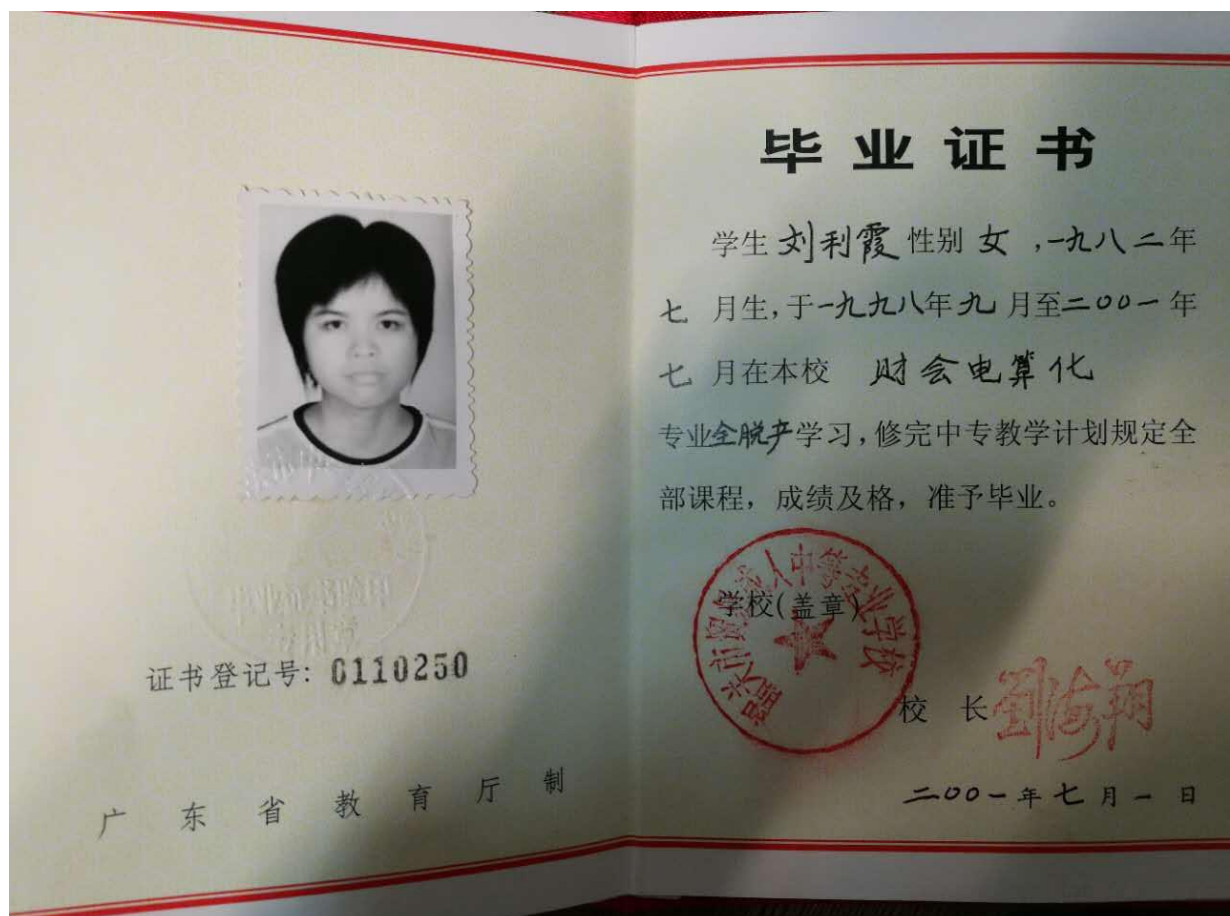 证书登记号: 0110250
广东省教育厅制
毕业证书
学生 刘利霞 性别 女 ,一九八二年
七 月生,于一九九八年九月至二〇〇一年
七 月在本校 财会电算化
专业全脱产学习,修完中专教学计划规定全
部课程,成绩及格,准予毕业。
学校(盖章)
成人中等专业学校
校 长 劉海翔
二〇〇一年七月一日